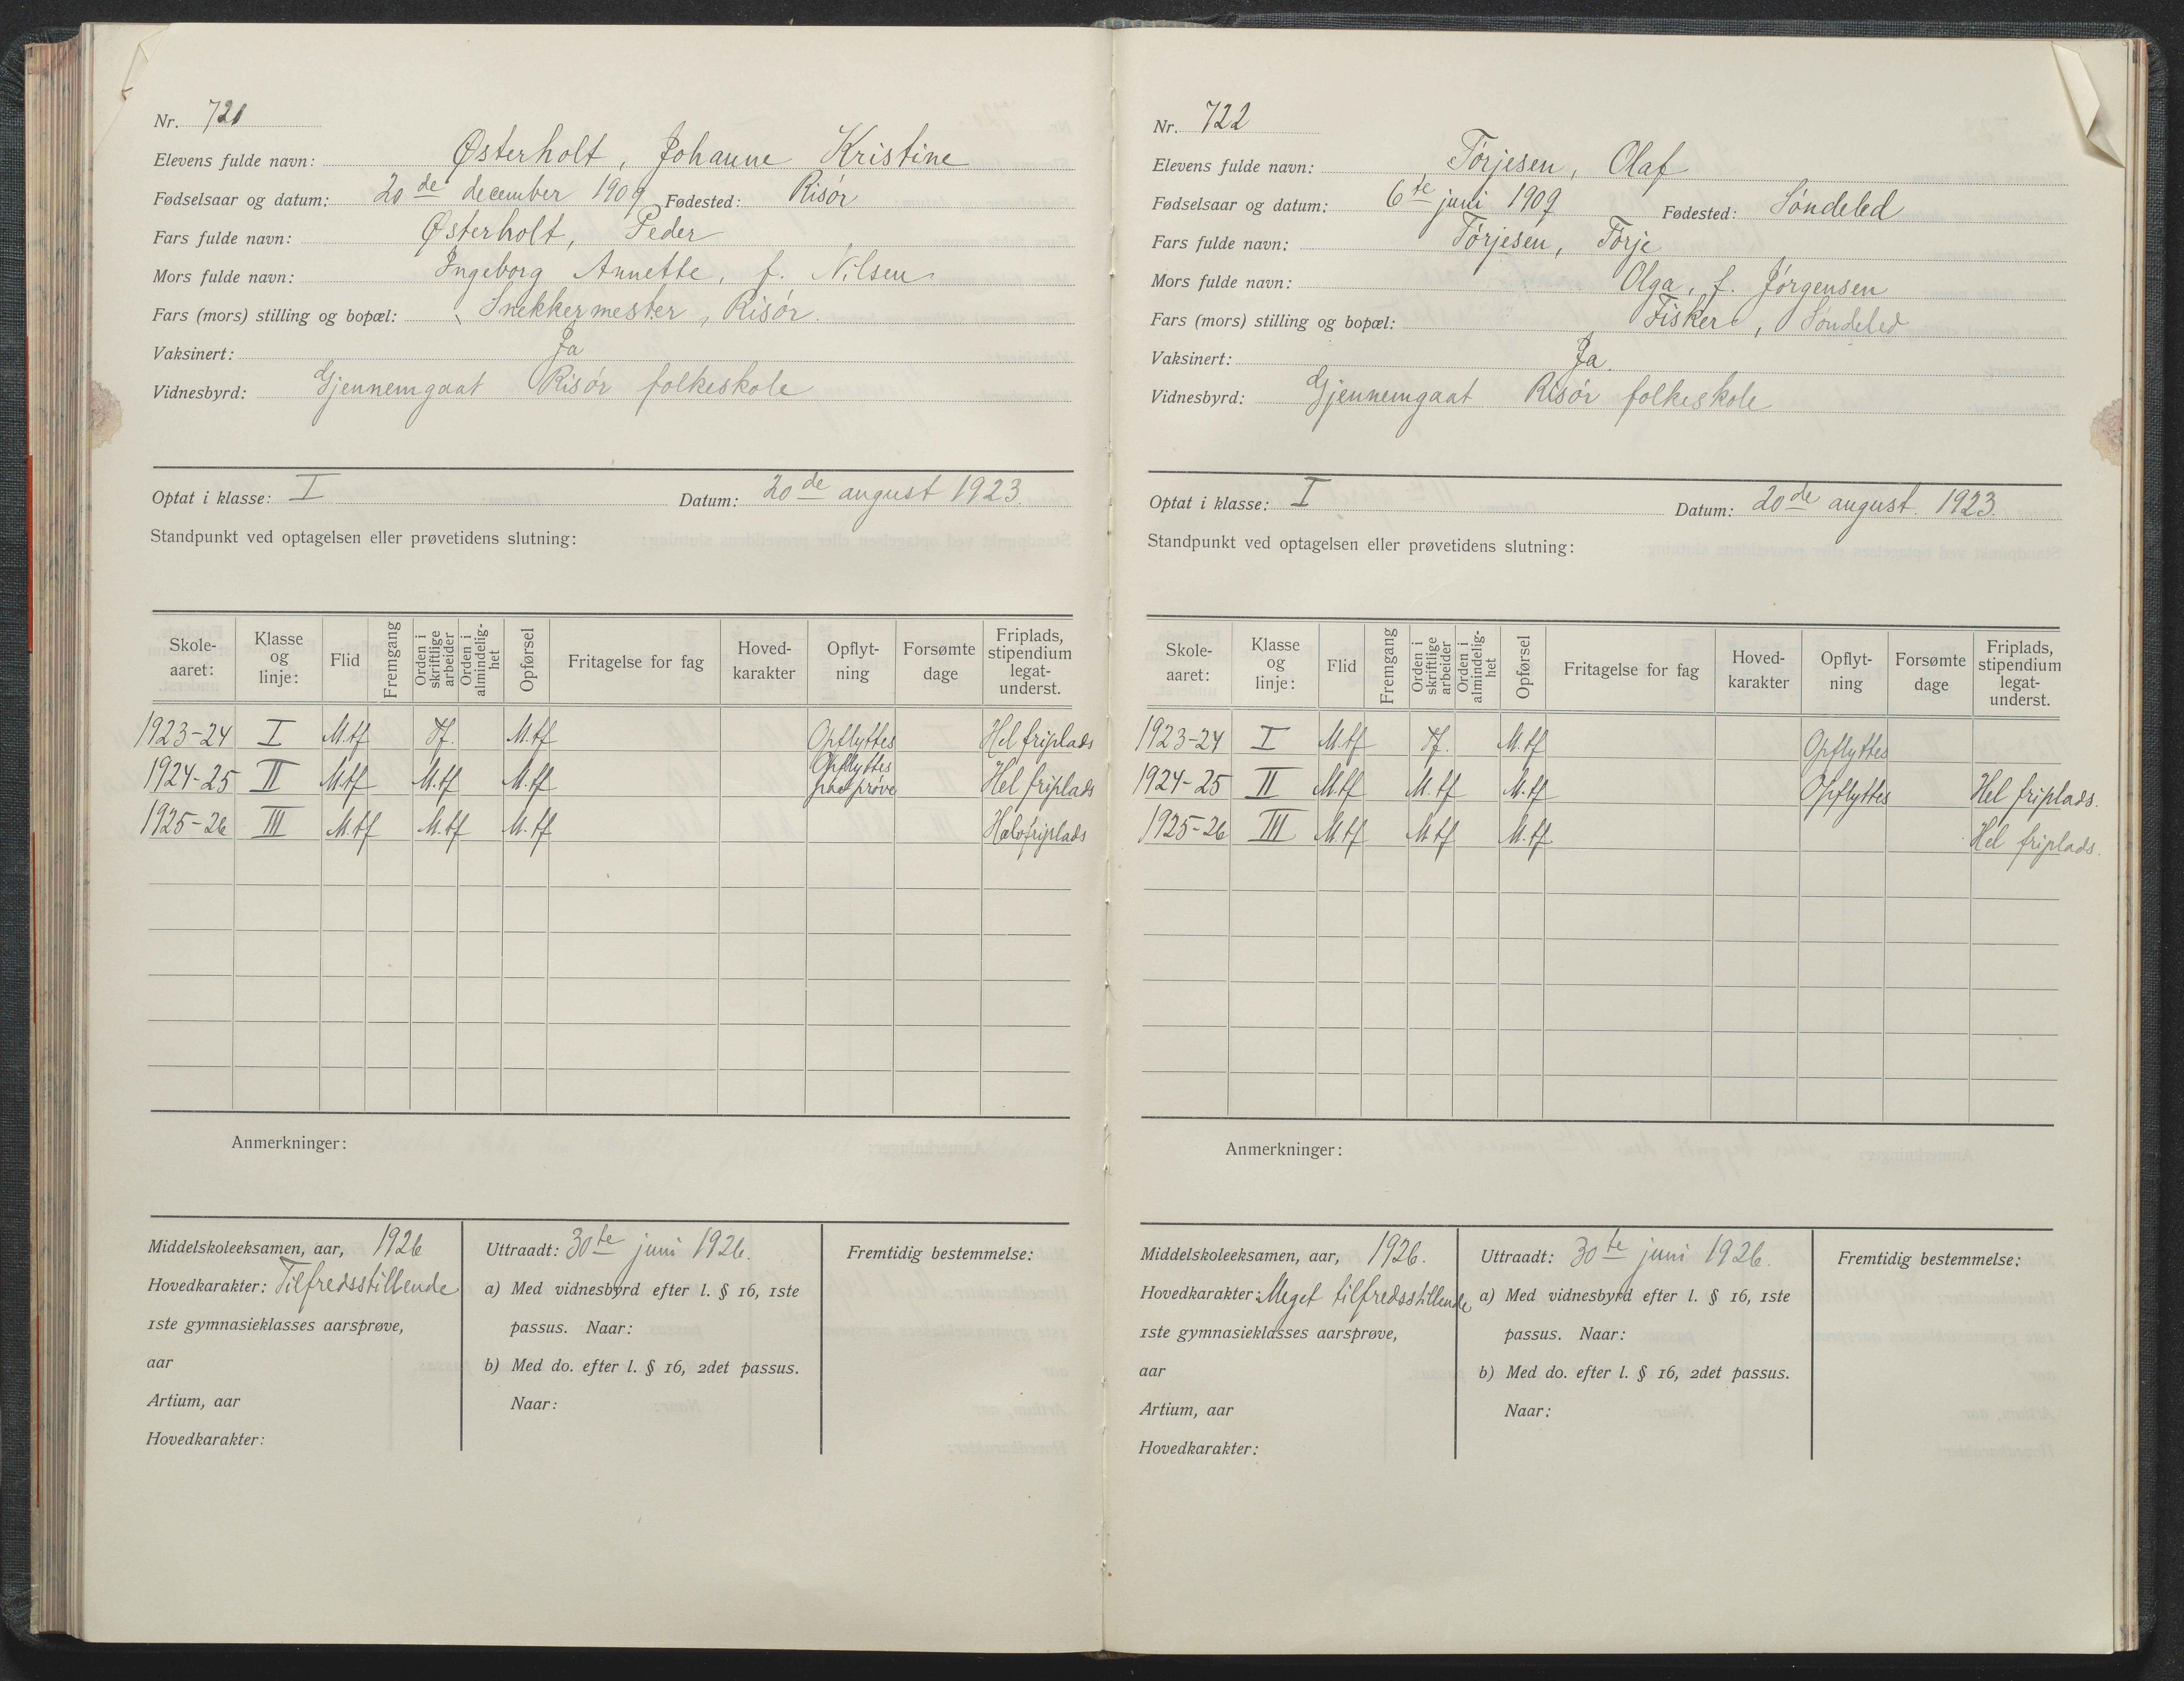 Nr. 721
Elevens fulde navn: Østerholt, Johanne Kristine
Fødselsaar og datum: 20de december 1909 Fødested: Risør
Fars fulde navn: Østerholt, Peder
Mors fulde navn: Ingeborg Annette, f. Nilsen
Fars (mors) stilling og bopæl: Snekkermester, Risør.
Vaksinert: Ja
Vidnesbyrd: Gjennemgaat Risør folkeskole
Optat i klasse: I Datum: 20de august 1923.
Standpunkt ved optagelsen eller prøvetidens slutning:
Skole-aaret: Klasse og linje: Flid Fremgang Orden i skriftlige arbeider Orden i almindelig-het Opførsel Fritagelse for fag Hoved-karakter Opflyt-ning Forsømte dage Friplads, stipendium legat-underst.
1923-24 I M.tf Tf. M.tf Opflyttes Hel friplads
1924-25 II M.tf M.tf M.tf Opflyttes paa prøve Hel friplads
1925-26 III M.tf M.tf M.tf Halv friplads
Anmerkninger:
Middelskoleeksamen, aar, 1926
Hovedkarakter: Tilfredsstillende
1ste gymnasieklasses aarsprøve,
aar
Artium, aar
Hovedkarakter:
Uttraadt: 30te juni 1926.
a) Med vidnesbyrd efter l. § 16, 1ste
passus. Naar:
b) Med do. efter l. § 16, 2det passus.
Naar:
Fremtidig bestemmelse:
Nr. 722
Elevens fulde navn: Tørjesen, Olaf
Fødselsaar og datum: 6te juni 1909 Fødested: Søndeled
Fars fulde navn: Tørjesen, Tørje
Mors fulde navn: Olga, f. Jørgensen
Fars (mors) stilling og bopæl: Fisker, Søndeled
Vaksinert: Ja.
Vidnesbyrd: Gjennemgaat Risør folkeskole
Optat i klasse: I Datum: 20de august. 1923.
Standpunkt ved optagelsen eller prøvetidens slutning:
Skole-aaret: Klasse og linje: Flid Fremgang Orden i skriftlige arbeider Orden i almindelig-het Opførsel Fritagelse for fag Hoved-karakter Opflyt-ning Forsømte dage Friplads, stipendium legat-underst.
1923-24 I M.tf Tf. M.tf Opflyttes
1924-25 II M.tf M.tf M.tf Opflyttes Hel friplads.
1925-26 III M.tf M.tf M.tf Hel friplads.
Anmerkninger:
Middelskoleeksamen, aar, 1926.
Hovedkarakter: Meget tilfredsstillende
1ste gymnasieklasses aarsprøve,
aar
Artium, aar
Hovedkarakter:
Uttraadt: 30te juni 1926.
a) Med vidnesbyrd efter l. § 16, 1ste
passus. Naar:
b) Med do. efter l. § 16, 2det passus.
Naar:
Fremtidig bestemmelse: